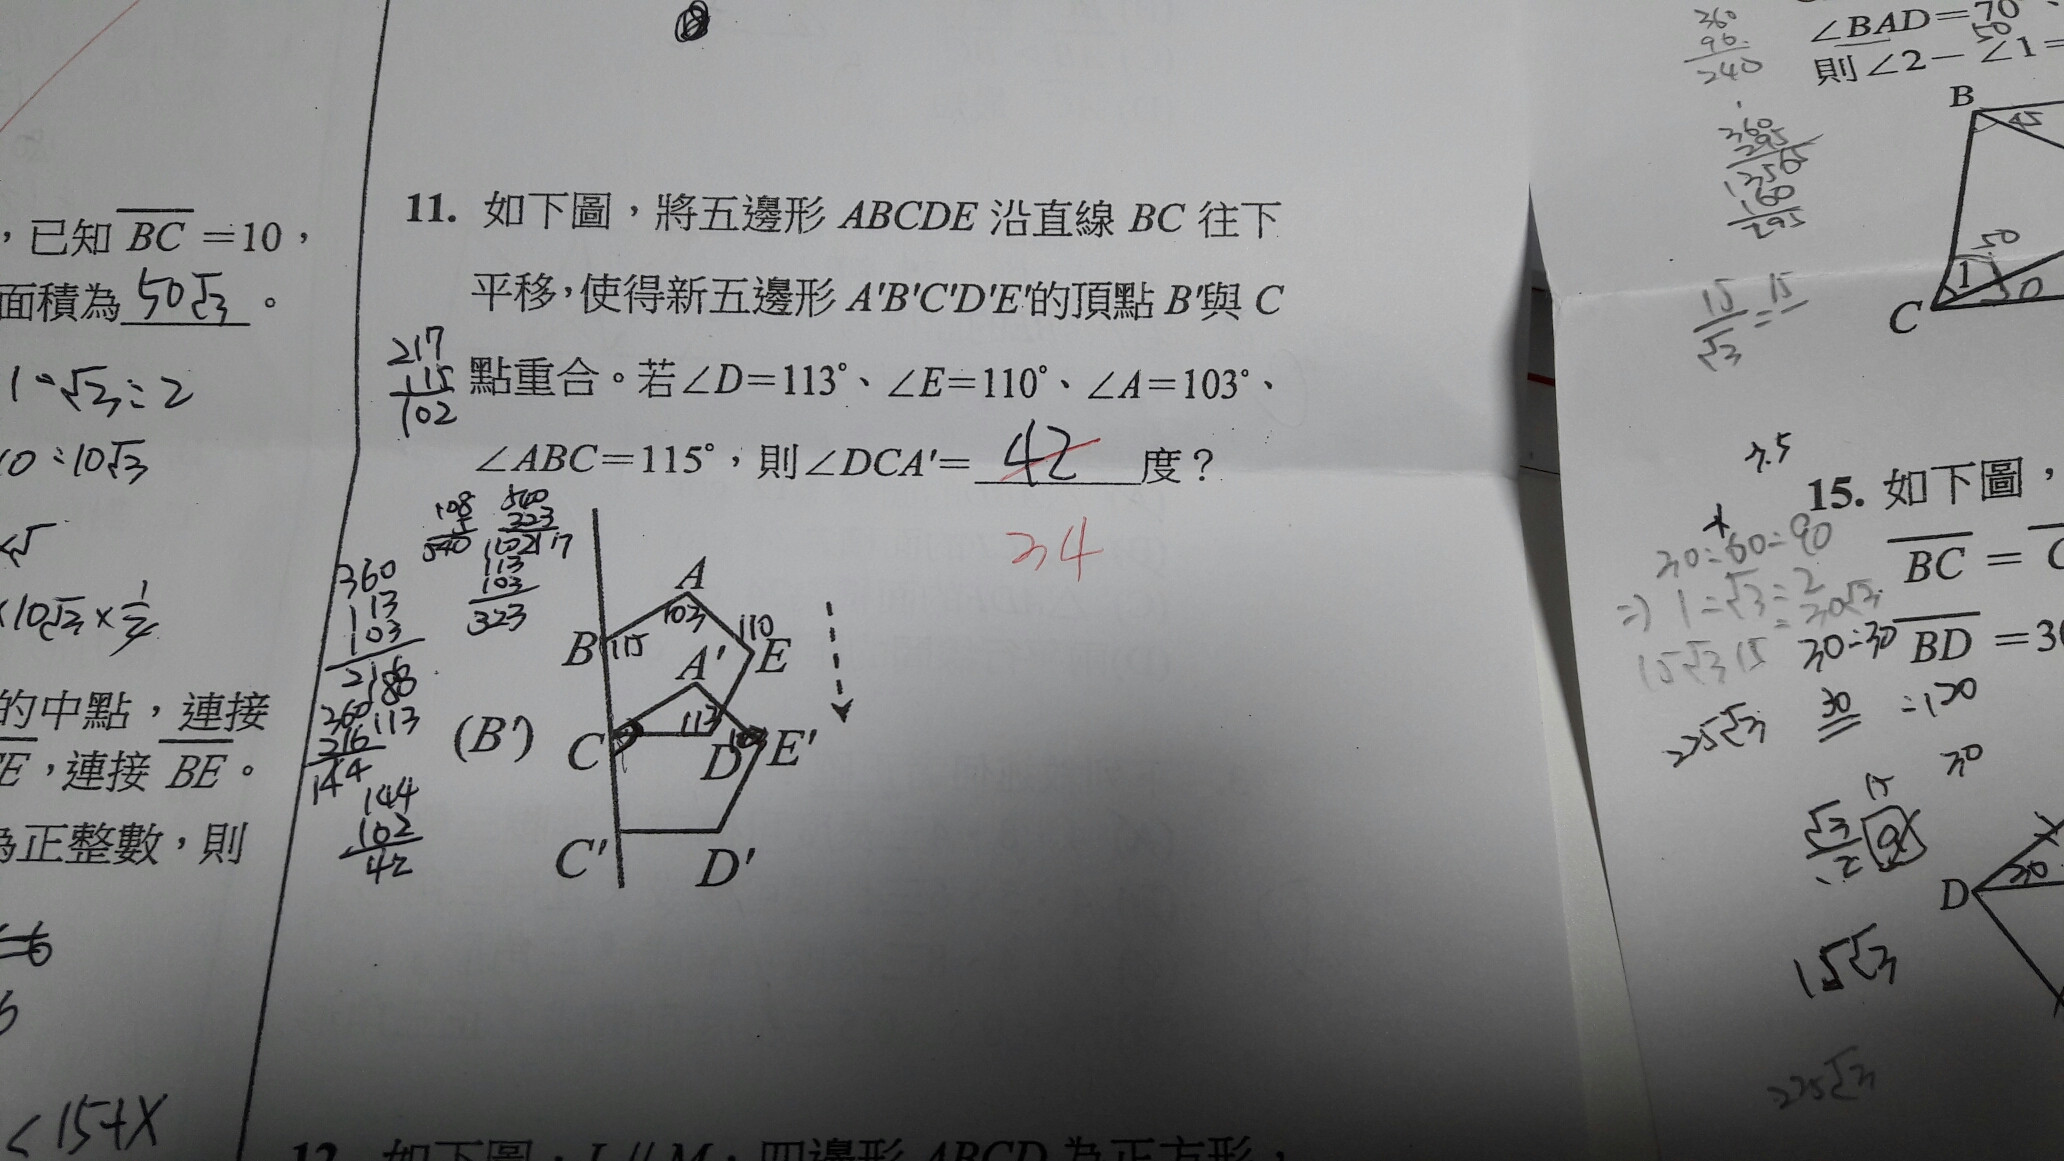 ，已知 BC =10，
面積為 50√3 。
1：√3：2
10：10√3
×10√3×1/2
的中點，連接
E，連接 BE。
為正整數，則
=6
<15+X
11. 如下圖，將五邊形 ABCDE 沿直線 BC 往下
平移，使得新五邊形 A'B'C'D'E'的頂點 B'與 C
點重合。若∠D=113°、∠E=110°、∠A=103°、
∠ABC=115°，則∠DCA'= 42 度？
34
217
115
102
108
5
540
540
223
113
103
323
360
113
103
216
360
216
144
144
102
42
A
103
110
B
115
A'
E
(B')
C
113
D
E'
C'
D'
12. 如下圖，L // M，四邊形 ABCD 為正方形，
360
240
∠BAD=70°、
50
則∠2－∠1=
B
45
360
295
160
295
50
1
50
C
15
√3
=
15
7.5
15. 如下圖，
BC =
30：60：90
⇒ 1：√3：2
15√3 15 = 30√3
30：30
BD =30
225√3
30
=120
30
15
√3
2
D
30
15√3
225√3